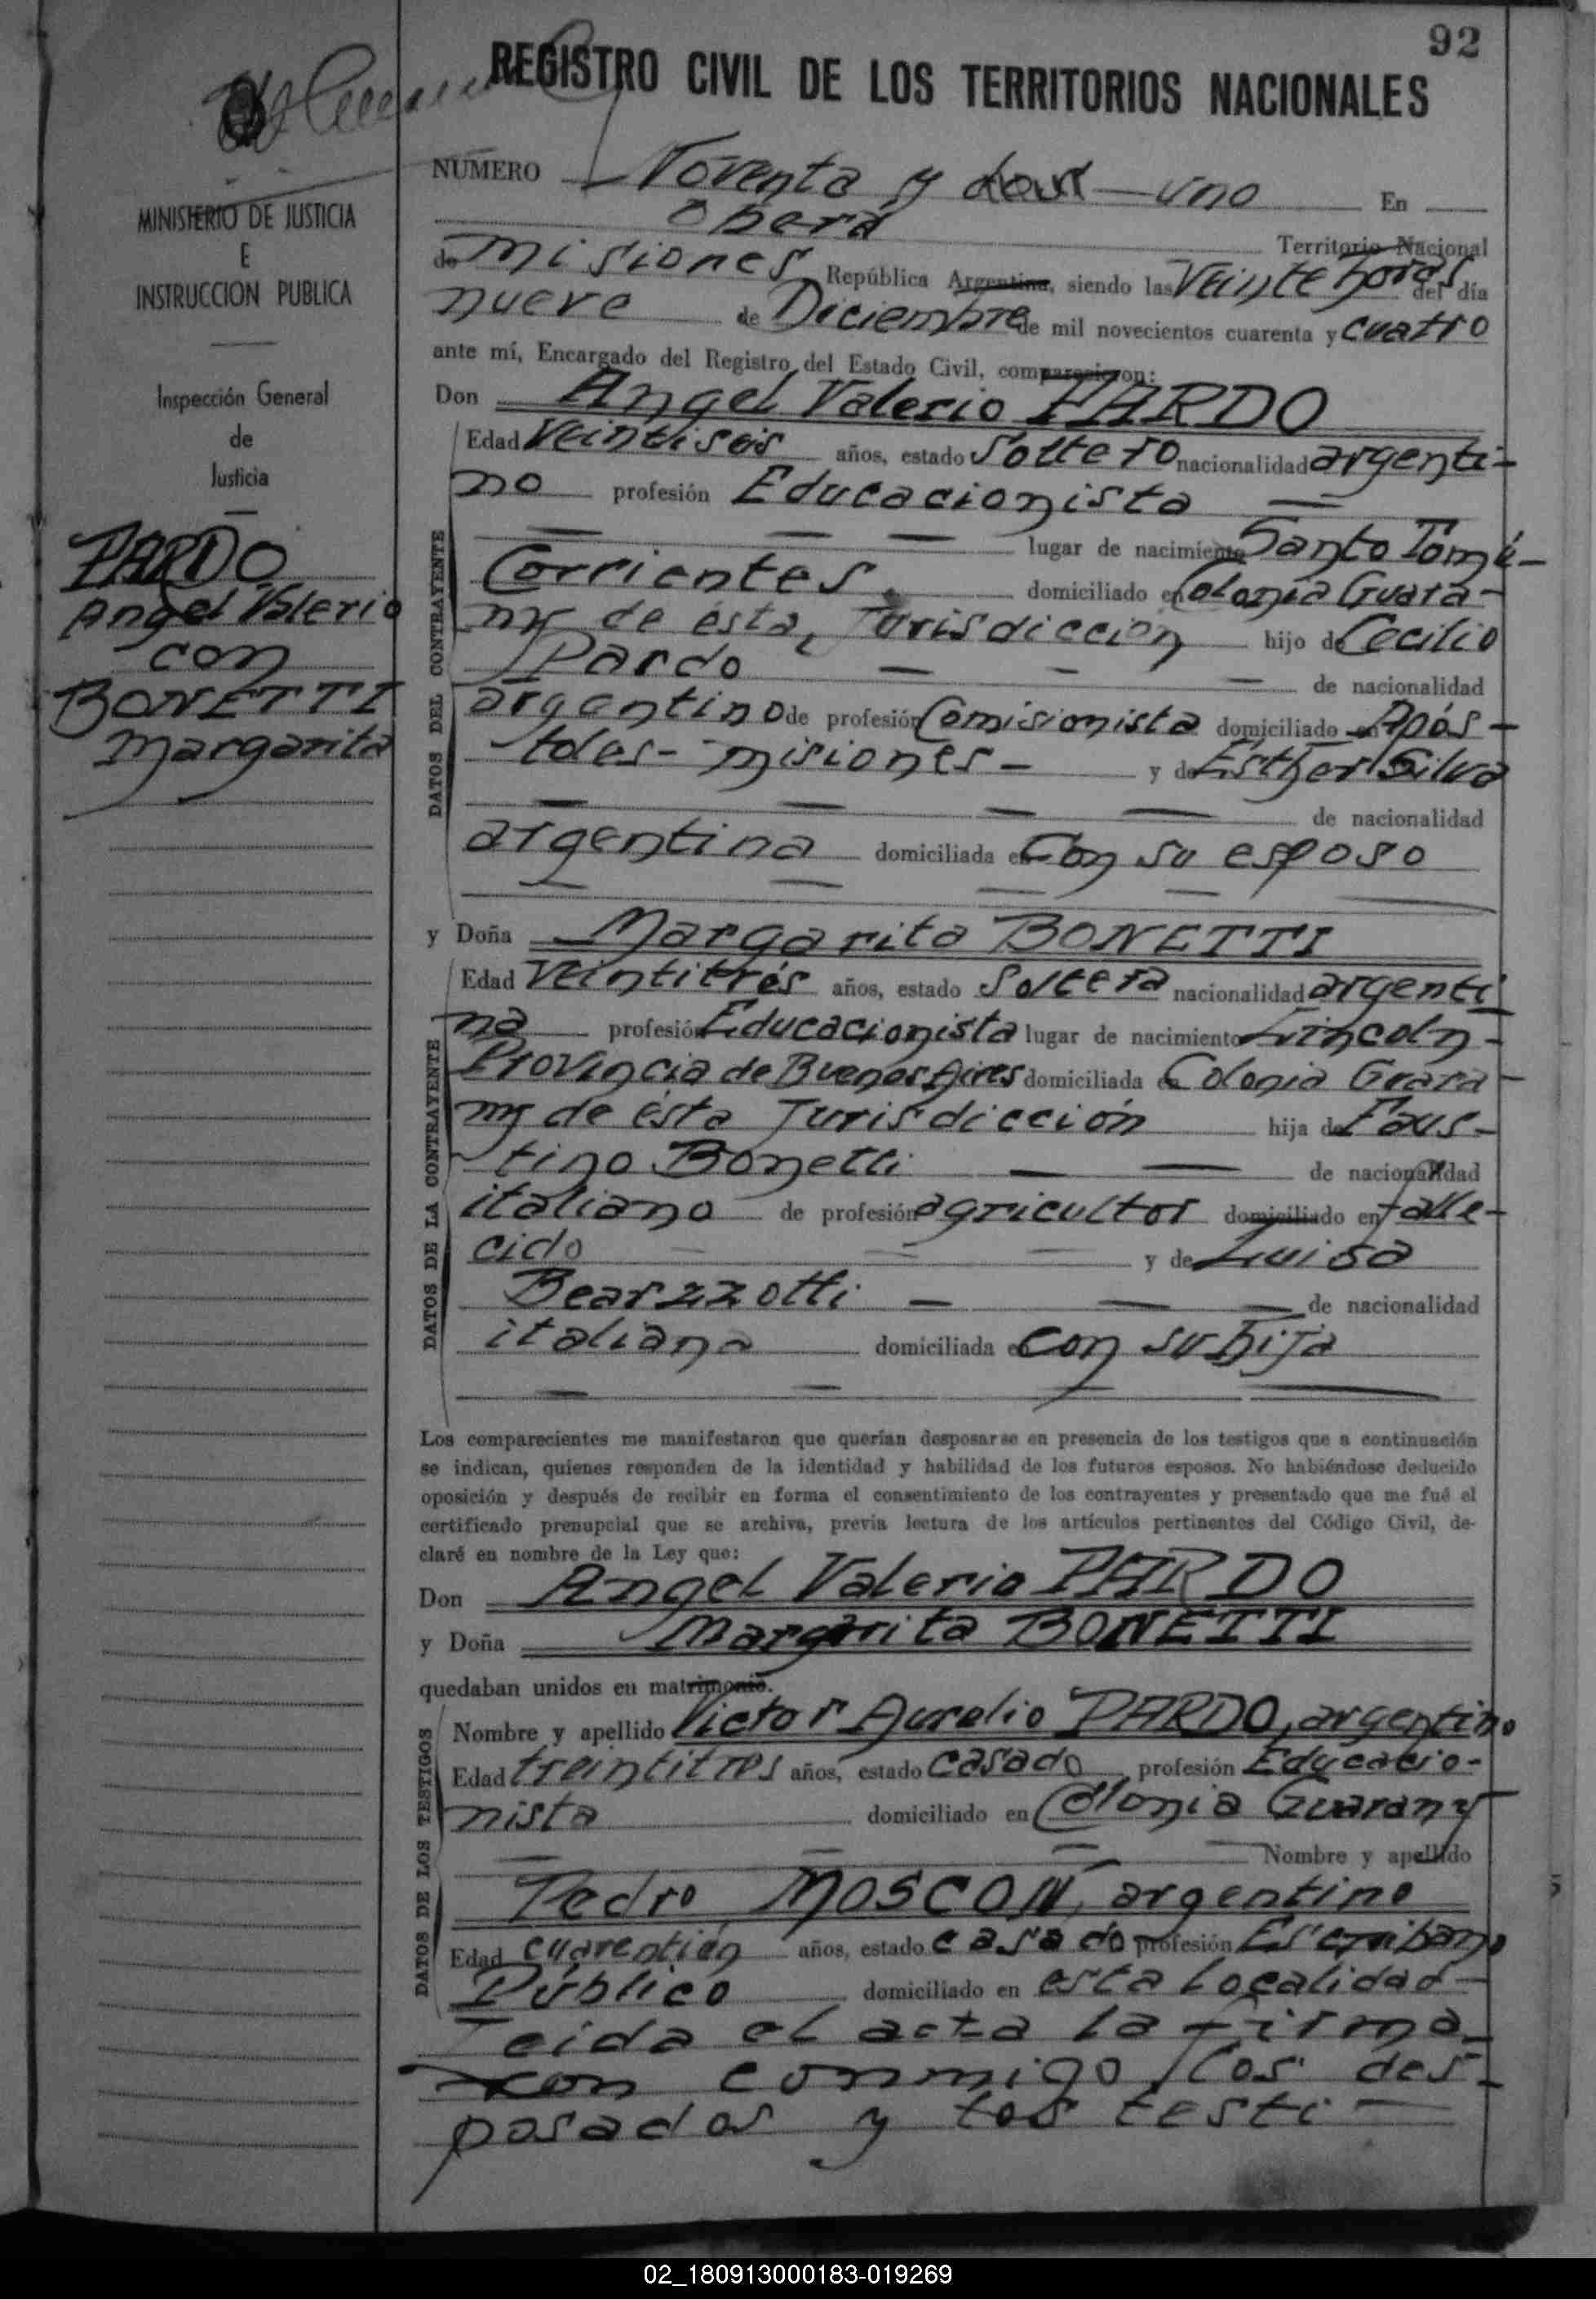 92
REGISTRO CIVIL DE LOS TERRITORIOS NACIONALES
NUMERO Noventa y uno En
Oberá Territorio Nacional
de Misiones República Argentina, siendo las Veinte horas del día
nueve de Diciembre de mil novecientos cuarenta y cuatro
ante mí, Encargado del Registro del Estado Civil, comparecieron:
Don Angel Valerio PARDO
Edad Veintiseis años, estado Soltero nacionalidad argenti-
no profesión Educacionista
lugar de nacimiento Santo Tomé-
Corrientes domiciliado en Colonia Guara-
ny de ésta Jurisdiccion hijo de Cecilio
Pardo de nacionalidad
argentino de profesión Comisionista domiciliado en Após-
toles- Misiones- y de Esther Silva
de nacionalidad
argentina domiciliada en Con su esposo
y Doña Margarita BONETTI
Edad Veintitrés años, estado Soltera nacionalidad argenti
na profesión Educacionista lugar de nacimiento Lincoln-
Provincia de Buenos Aires domiciliada en Colonia Guara-
ny de ésta Jurisdicción hija de Faus-
tino Bonetti de nacionalidad
italiano de profesión agricultor domiciliado en falle-
cido y de Luisa
Bearzzotti de nacionalidad
italiana domiciliada en con su hija
Los comparecientes me manifestaron que querían desposarse en presencia de los testigos que a continuación
se indican, quienes responden de la identidad y habilidad de los futuros esposos. No habiéndose deducido
oposición y después de recibir en forma el consentimiento de los contrayentes y presentado que me fué el
certificado prenupcial que se archiva, previa lectura de los artículos pertinentes del Código Civil, de-
claré en nombre de la Ley que:
Don Angel Valerio PARDO
y Doña Margarita BONETTI
quedaban unidos en matrimonio.
Nombre y apellido Victor Aurelio PARDO, argentino
Edad treintitres años, estado casado profesión Educacio-
nista domiciliado en Colonia Guarany
Nombre y apellido
Pedro MOSCON, argentino
Edad cuarentiún años, estado casado profesión Escribano
Público domiciliado en esta Localidad
Leida el acta la firma-
ron conmigo los des-
posados y los testi-
MINISTERIO DE JUSTICIA
E
INSTRUCCION PUBLICA
Inspección General
de
Justicia
PARDO
Angel Valerio
con
BONETTI
Margarita
DATOS DEL CONTRAYENTE
DATOS DE LA CONTRAYENTE
DATOS DE LOS TESTIGOS
02_180913000183-019269